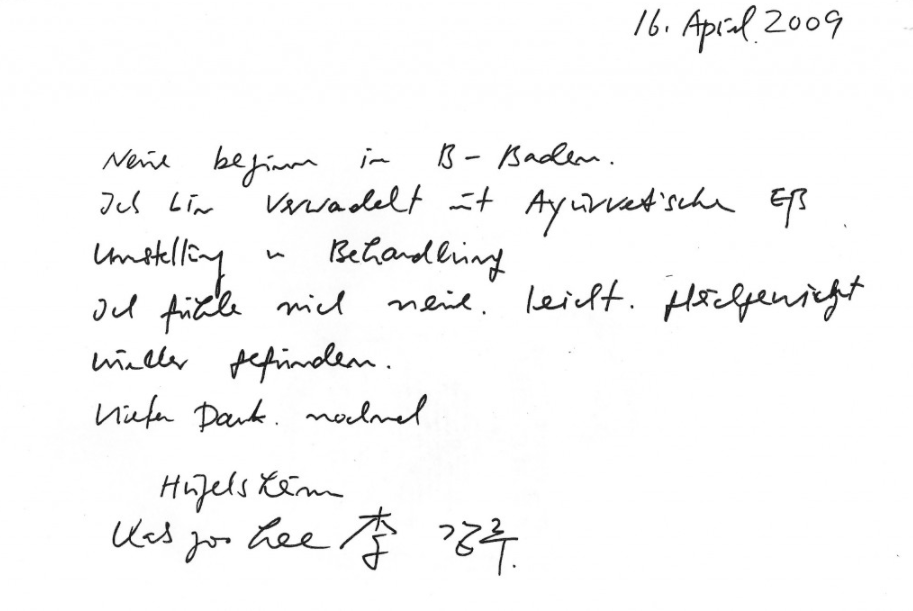 16. April 2009
Neue beginn in B-Baden.
Ich bin verwadelt mit Ayurvetische Eß
Umstellung u Behandlung
Ich fühle mich neue. leicht.
wieder gefunden.
Vielen Dank. nochmal
Lee 李